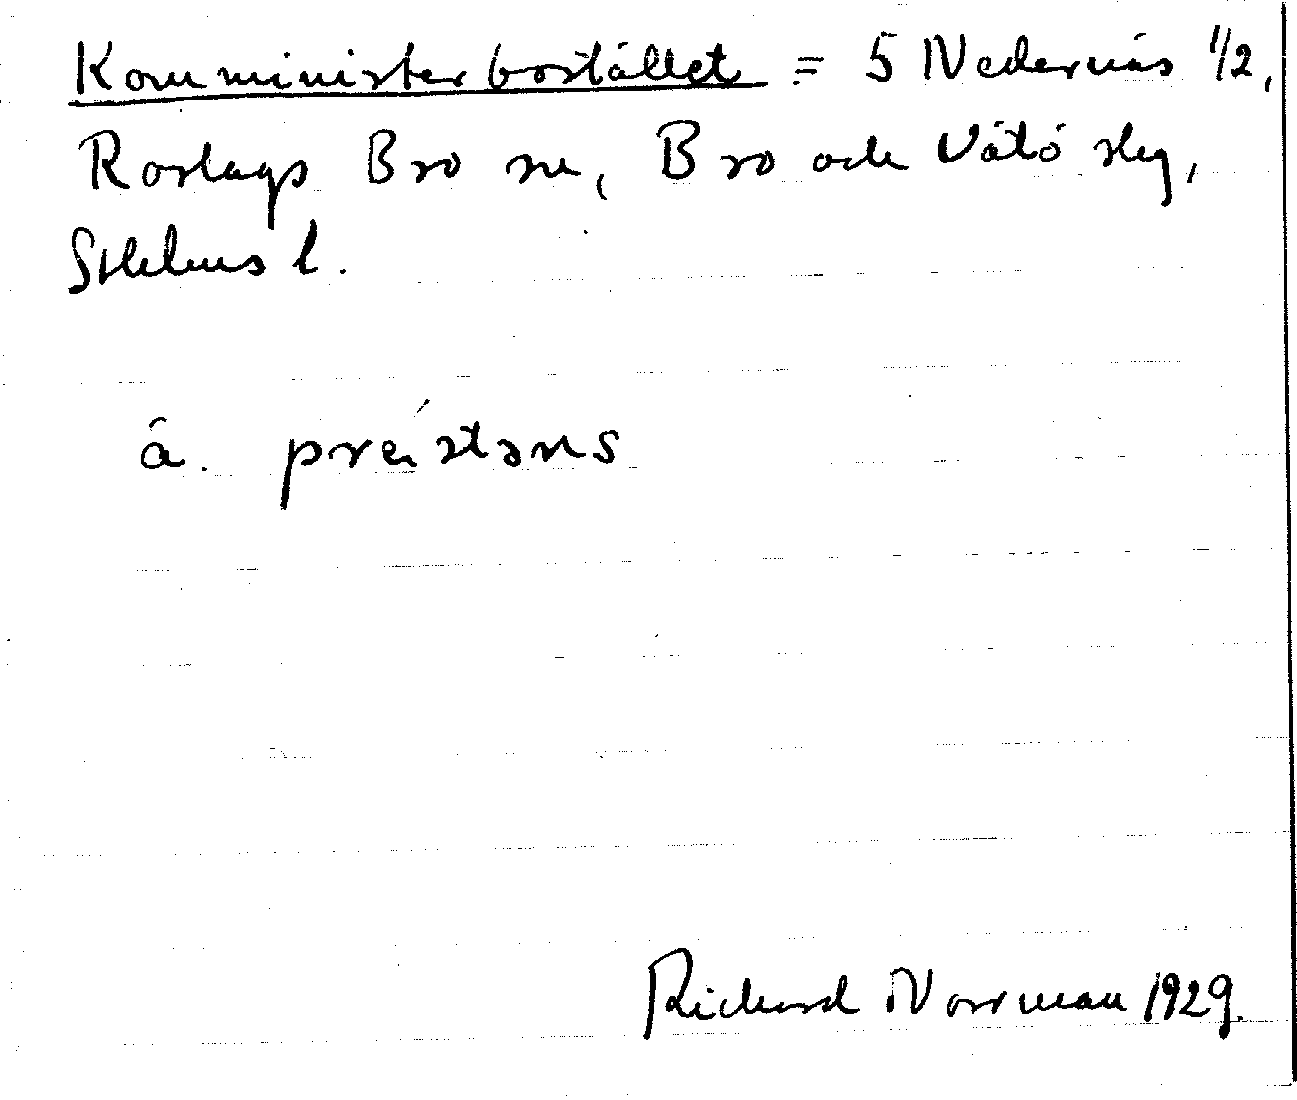 Komministerbostället = 5 Nedernäs 1/2,
Roslags Bro sn, Bro och Vätö skg,
Sthlms l.
å. prɛ́stəns
Richard Norrman 1929.